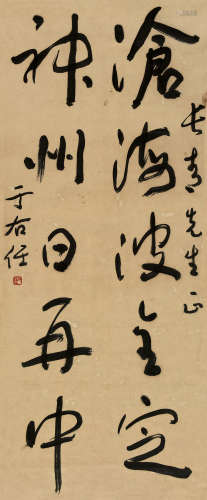 長青先生正
滄海波全定
神州日再中
于右任